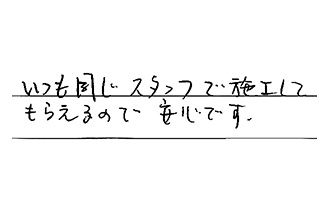 いつも同じスタッフで施工して
もらえるので安心です.